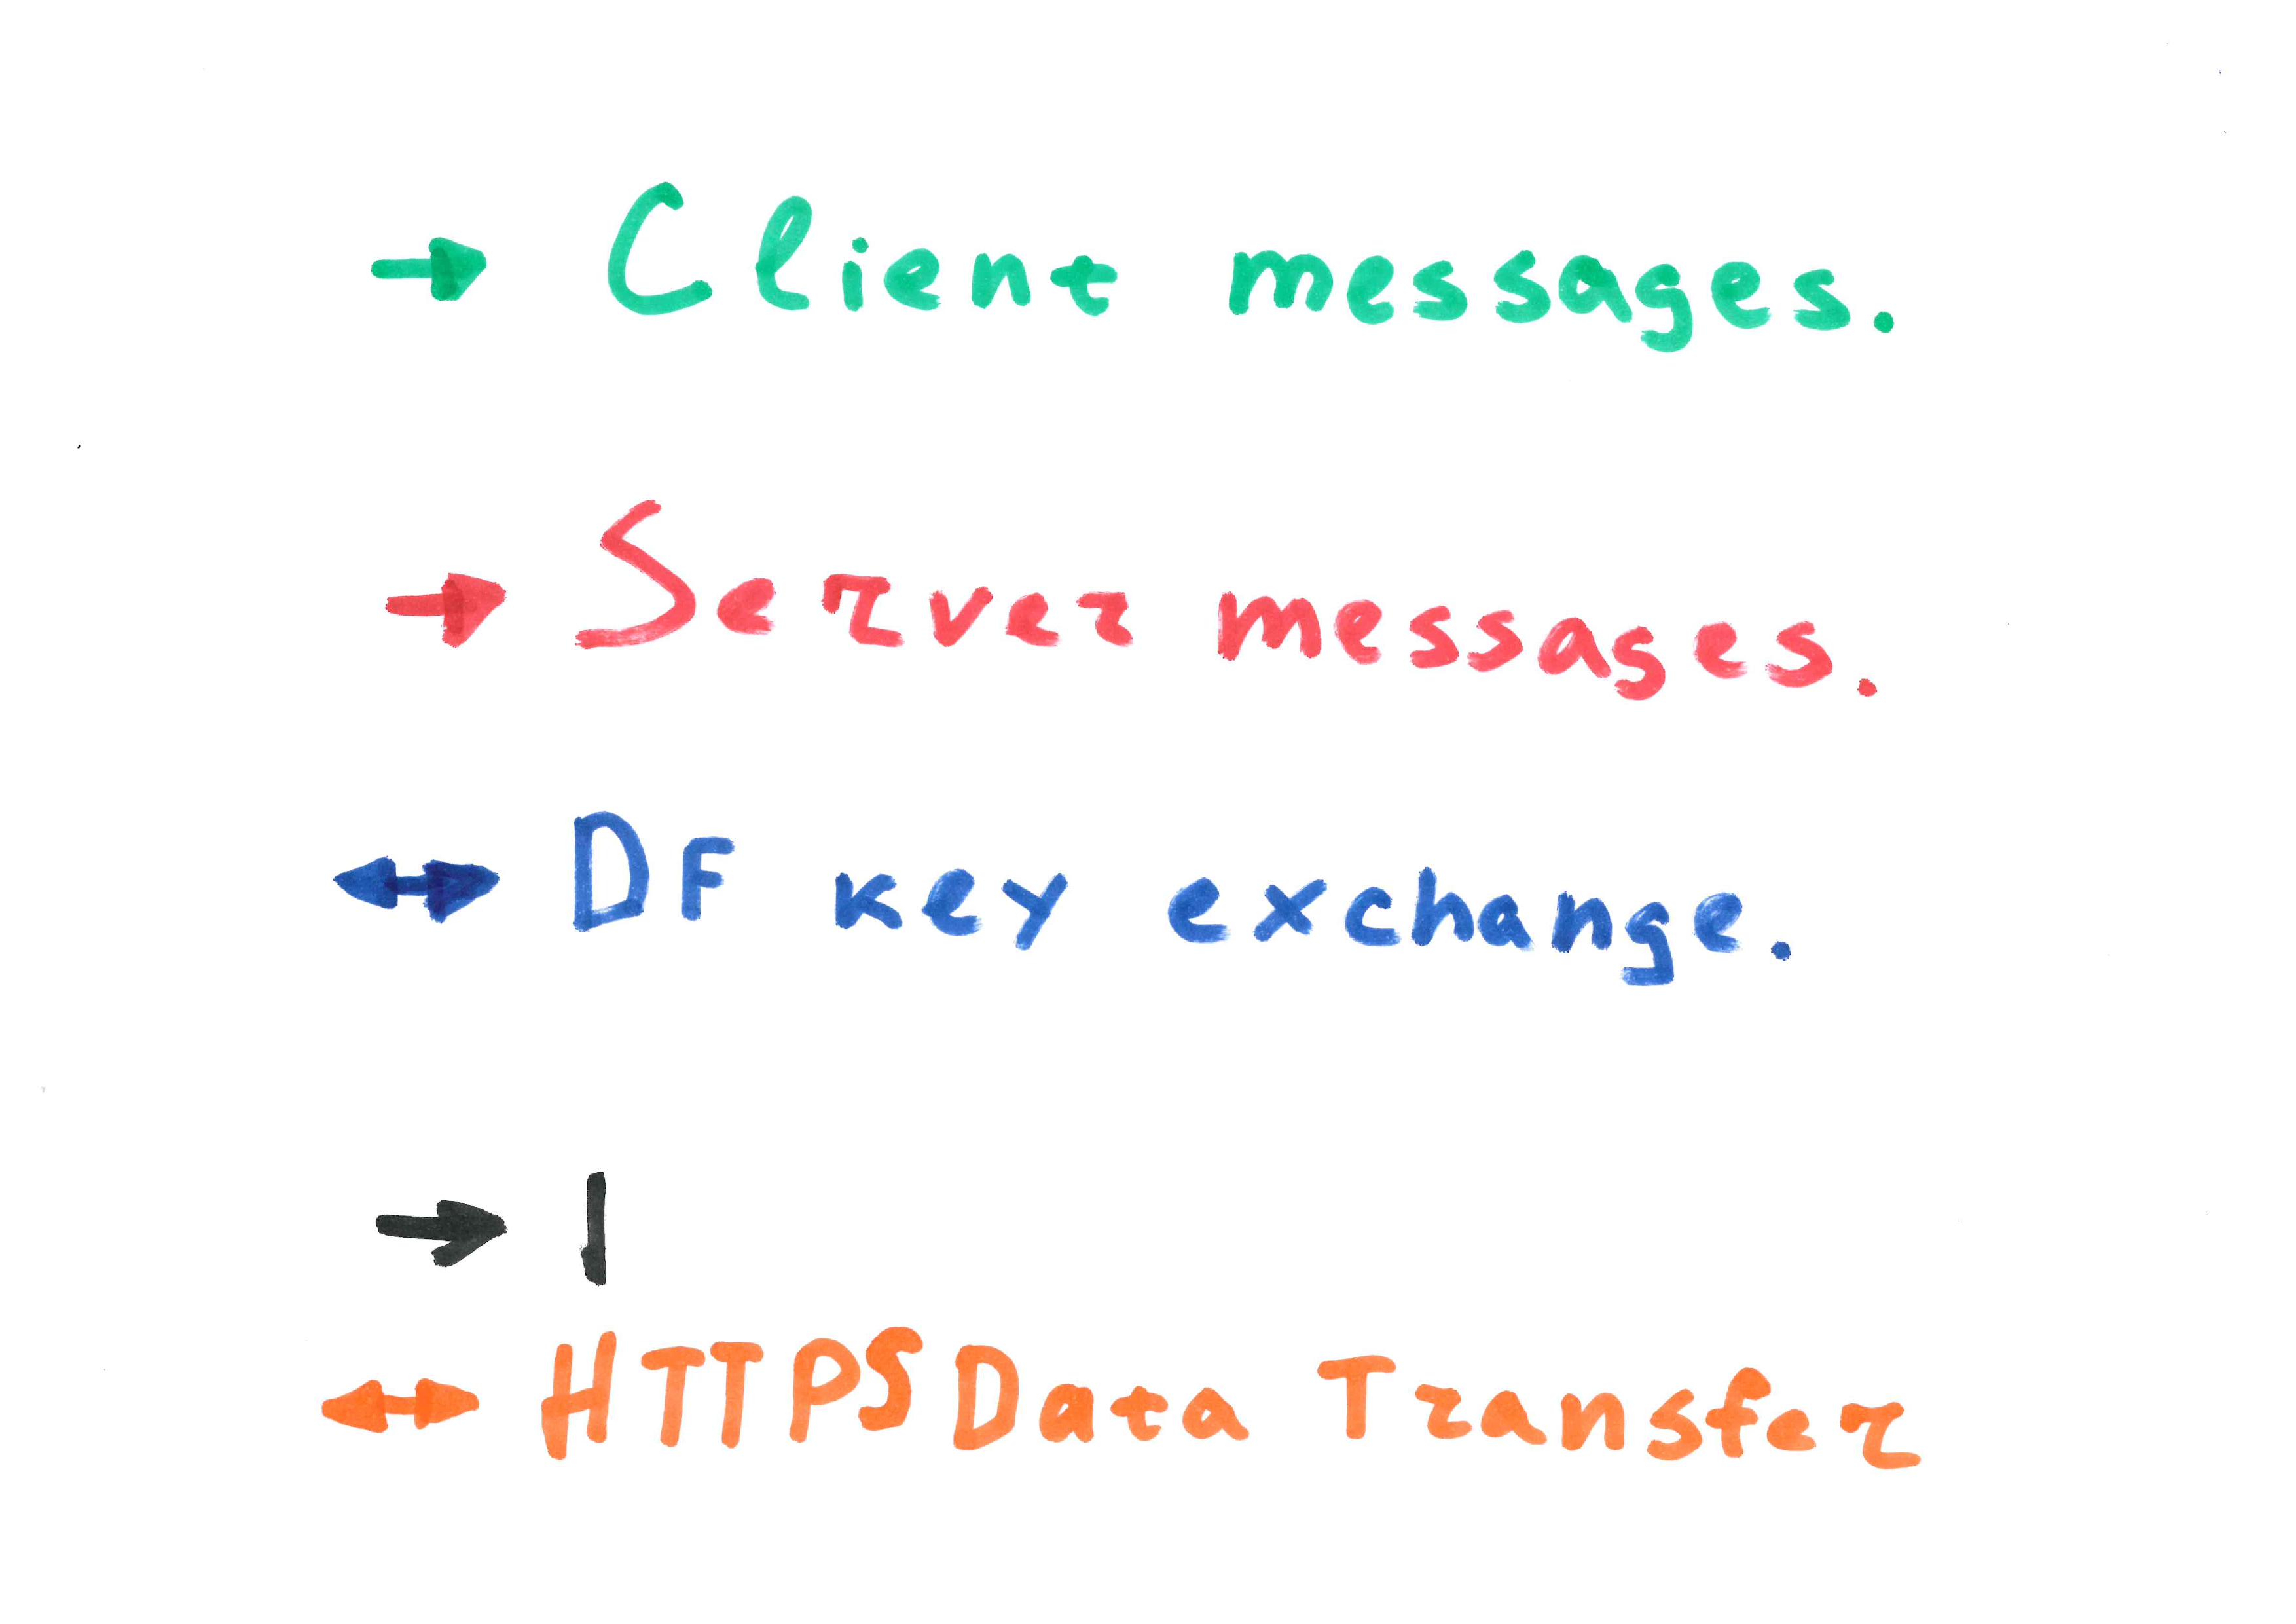 → Client messages.
→ Server messages.
↔ DF key exchange.
→ |
↔ HTTPS Data Transfer